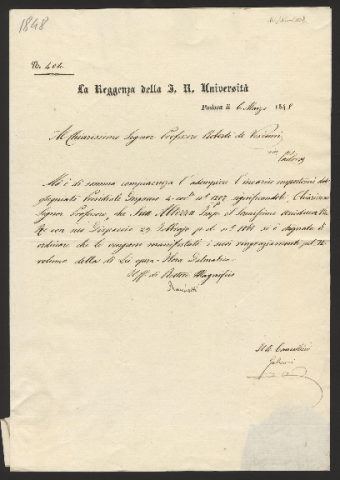 1848
N.° 404.
La Reggenza della I. R. Università
Padova li 6. Marzo 1848
Al Chiarissimo Signor Professore Roberto de Visiani
in
Padova
Mi è di somma compiacenza l'adempiere l'incarico
Presidiale n.° 1207 significandole, Chiarissimo
Signor Professore, che Sua Altezza Imp. il Serenissimo Arciduca Vice
Re con suo Dispaccio 29 Febbrajo p. d. n.° si è degnata di
ordinare che le vengano manifestati i suoi ringraziamenti pel
volume della di Lei opera - Flora Dalmatica.
Il Rettore Magnifico
Il Cancelliere